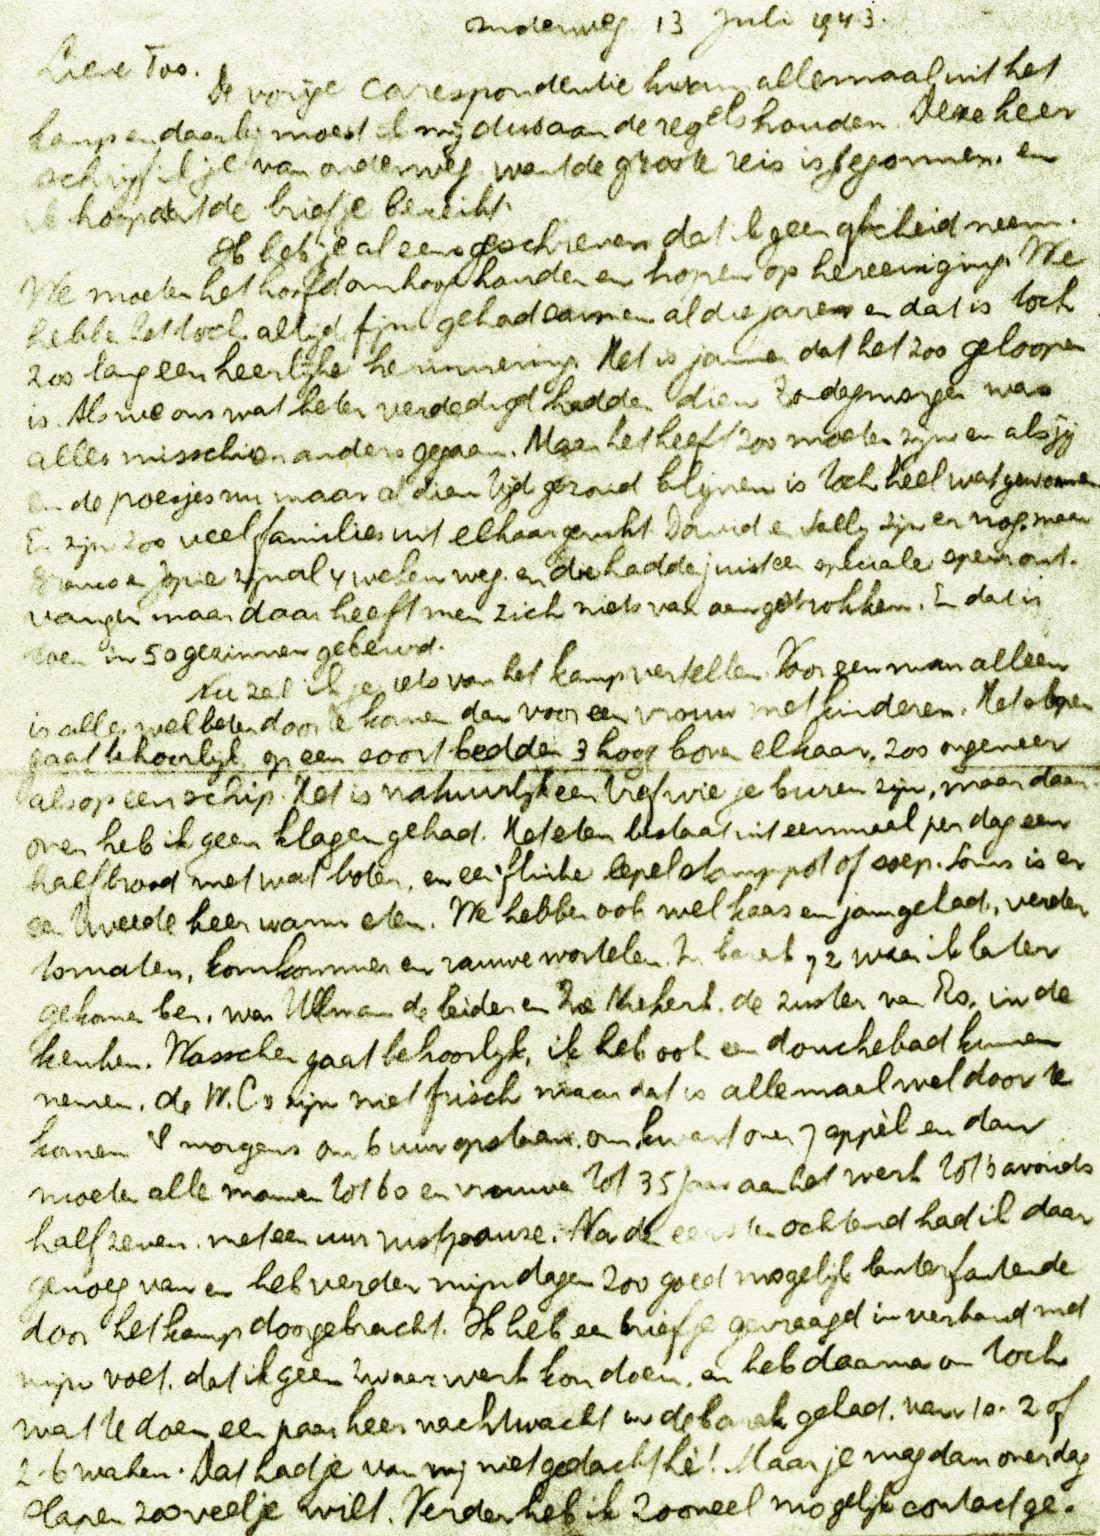 onderweg 13 Juli 1943.
Lieve Too.
De vorige carespondentie kwam allemaal uit het
kamp en daarbij moest ik mij dus aan de regels houden. Deze keer
schrijf ik je van onderweg want de groote reis is begonnen. en
ik hoop dat de briefje bereikt.
Ik heb je al eens geschreven dat ik geen afscheid neem.
We moeten het hoofd omhoog houden en hopen op hereeniging. We
hebben het toch altijd fijn gehad samen al die jaren en dat is toch
zoo lang een heerlijke herinnering. Het is jammer dat het zoo geloopen
is. Als we ons wat beter verdedigd hadden dien Zondagmorgen was
alles misschien anders gegaan. Maar het heeft zoo moeten zijn en als jij
en de poesjes nu maar al dien tijd gezond blijven is toch heel wat gewonnen
Er zijn zoo veel families uit elkaar gerukt. David en Sally zijn er nog, maar
en Jopie zijn al 4 weken weg. en die hadden juist een speciale
vangen maar daar heeft men zich niets van aangetrokken. En dat is
toen in 50 gezinnen gebeurd.
Nu zal ik je iets van het kamp vertellen. Voor een man alleen
is alles wel beter door te komen dan voor een vrouw met kinderen. Het slapen
gaat behoorlijk op een soort bedden 3 hoog boven elkaar, zoo ongeveer
als op een schip. Het is natuurlijk een tref wie je buren zijn, maar daar-
over heb ik geen klagen gehad. Het eten bestaat uit eenmaal per dag een
half brood met wat boter, en een flinke lepel stamppot of soep. Soms is er
een tweede keer warm eten. We hebben ook wel kaas en jam gehad, verder
tomaten, komkommer en rauwe wortelen. In barak 72 waar ik later
gekomen ben, was Ullman de leider en de zuster van Ro, in de
keuken. Wasschen gaat behoorlijk, ik heb ook een douchebad kunnen
nemen. de W.C.s zijn niet frisch maar dat is allemaal wel door te
komen. 's morgens om 6 uur opstaan. om kwart over 7 appèl en dan
moeten alle mannen tot 60 en vrouwen tot 35 jaar aan het werk tot 's avonds
half zeven. met een uur rustpauze. Na de eersten ochtend had ik daar
genoeg van en heb verder mijn dagen zoo goed mogelijk lanterfantende
door het kamp doorgebracht. Ik heb een briefje gevraagd in verband met
mijn voet. dat ik geen zwaar werk kon doen. en heb daarna om toch
wat te doen een paar keer nachtwacht in de barak gehad. van 10-2 of
2-6 waken. Dat had je van mij niet gedacht hè! Maar je mag dan overdag
slapen zooveel je wilt. Verder heb ik zooveel mogelijk contact ge-